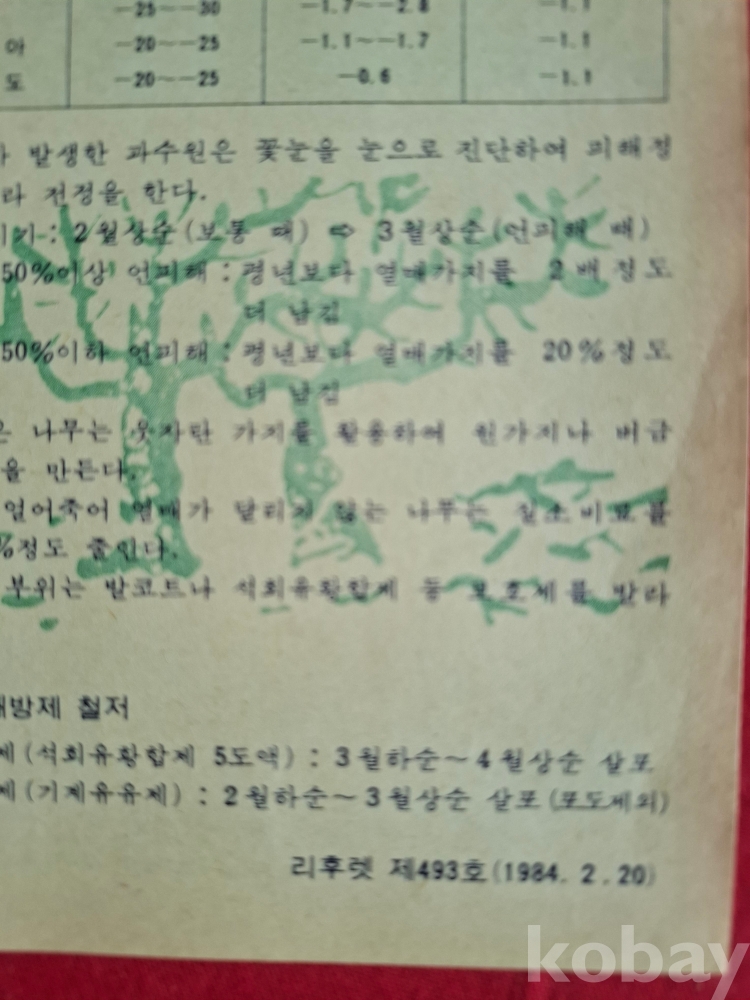 -25~-30 -1.7~-2.8 -1.1
아 -20~-25 -1.1~-1.7 -1.1
도 -20~-25 -0.6 -1.1
발생한 과수원은 꽃눈을 눈으로 진단하여 피해정
라 전정을 한다.
기: 2월상순(보통 때) ⇨ 3월상순(언피해 때)
50%이상 언피해 : 평년보다 열매가지를 2배정도
더 남김
50%이하 언피해 : 평년보다 열매가지를 20%정도
더 남김
은 나무는 웃자란 가지를 활용하여 원가지나 버금
을 만든다.
얼어죽어 열매가 달리지 않는 나무는 질소비료를
%정도 줄인다.
부위는 발코트나 석회유황합제 등 보호제를 발라
방제 철저
제(석회유황합제 5도액) : 3월하순~4월상순 살포
제(기계유유제) : 2월하순~3월상순 살포(포도제외)
리후렛 제493호(1984. 2. 20)
kobay